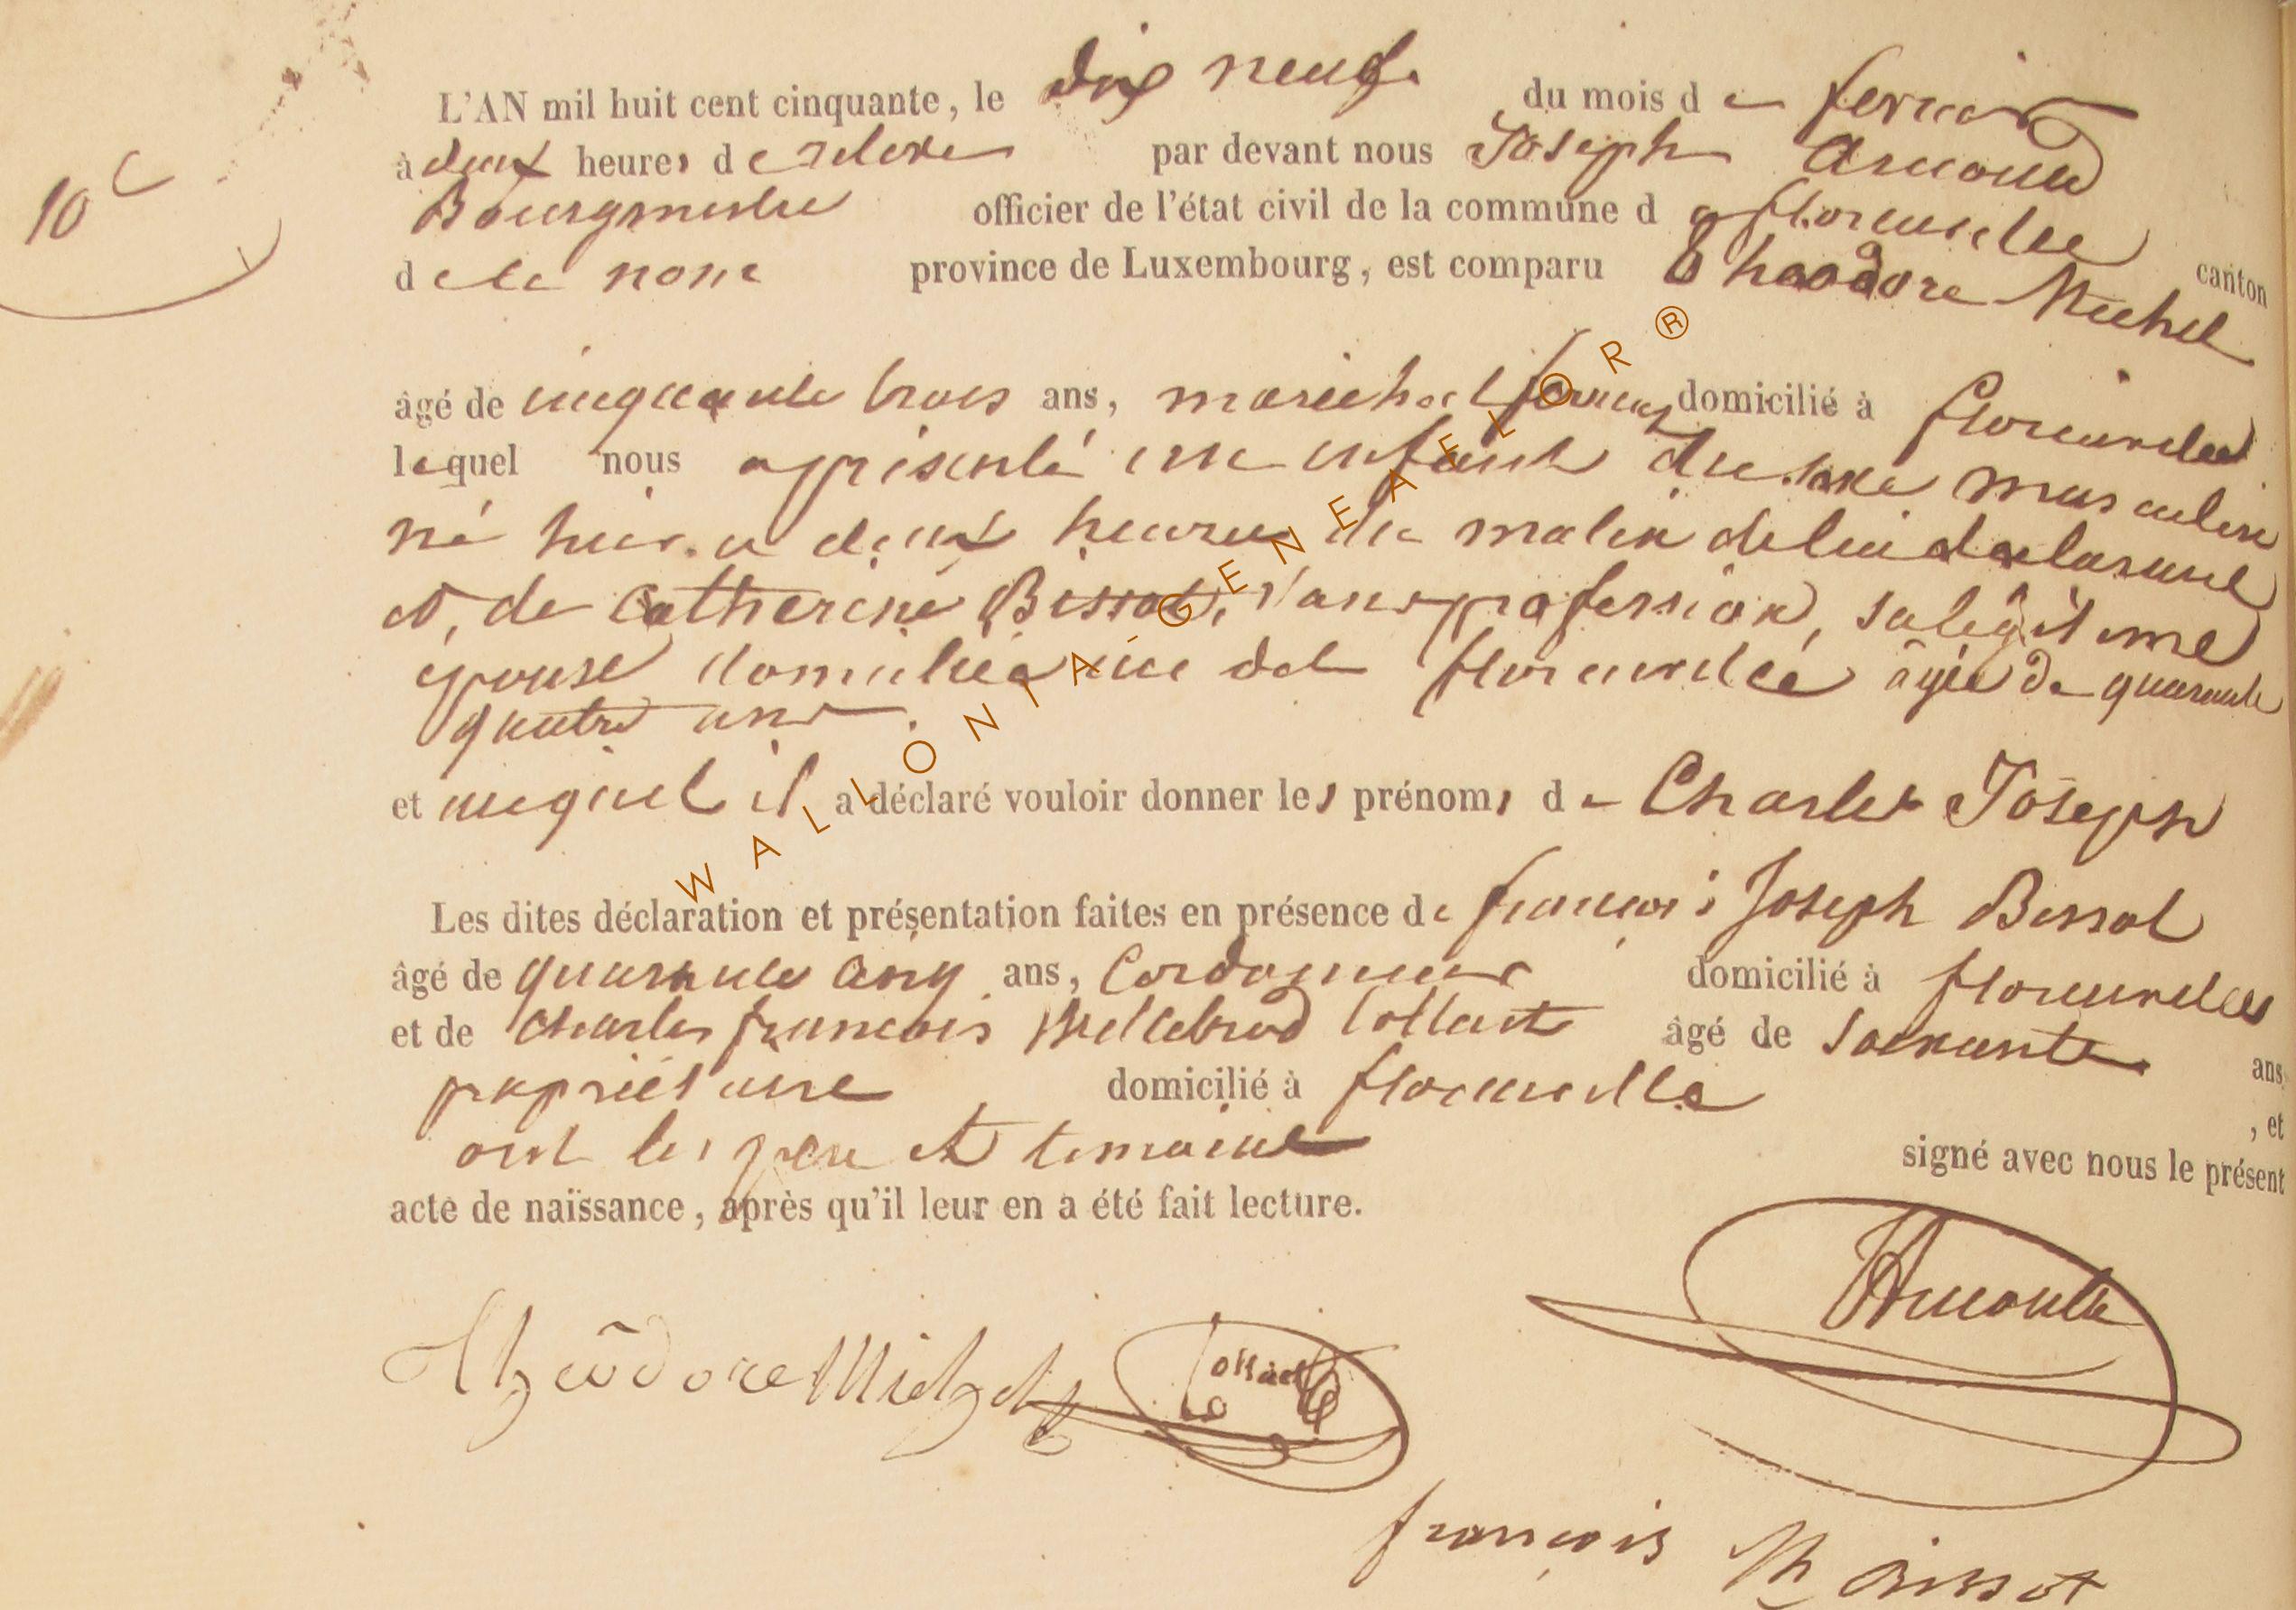 L'AN mil huit cent cinquante, le dix neuf du mois de fevrier
10e
à deux heures de relevée par devant nous Joseph Arnould
Bourgmestre officier de l'état civil de la commune de florenville canton
de le nome province de Luxembourg, est comparu Theodore Michel
âgé de cinquante trois ans, marichal ferrant domicilié à florenville
lequel nous a présenté un enfant du sexe masculin
né hier a deux heures du matin de lui declarant
et de Catherine Bissot, sans profession, sa légitime
épouse domiciliée audel florenville âgée de quarante
quatre ans.
et auquel il a déclaré vouloir donner les prénoms de Charles Joseph
Les dites déclaration et présentation faites en présence de francois Joseph Bissot
âgé de quarante cinq ans, Cordonnier domicilié à florenville
et de charles francois Willebrod Collart âgé de soixante ans
propriétaire domicilié à florenville, et
ont les pere et temoins signé avec nous le présent
acte de naissance, après qu'il leur en a été fait lecture.
JArnould
Theodore Michel Collart
francois Bissot
WALLONIA-GENEAFLOR®